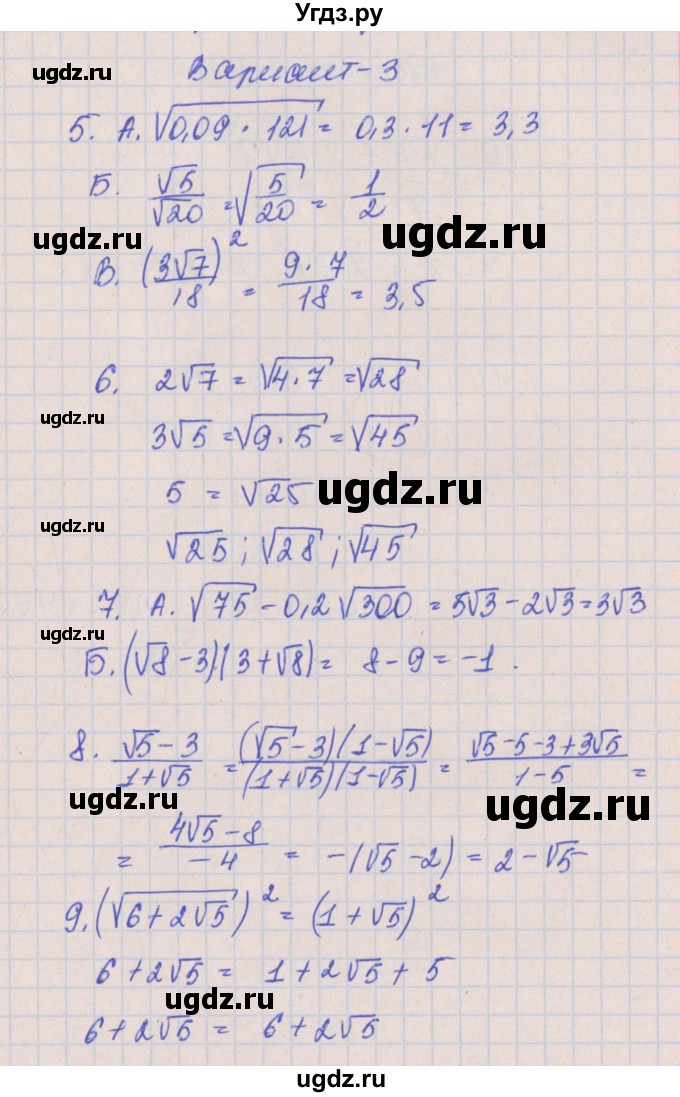 Угдз.ру
Вариант-3
ugdz.ru
5. А. √(0,09 · 121) = 0,3 · 11 = 3,3
Б. √5/√20 = √(5/20) = 1/2
ugdz.ru
ugdz.ru
В. (3√7/18)² = 9·7/18 = 3,5
6. 2√7 = √(4·7) = √28
ugdz.ru
3√5 = √(9·5) = √45
5 = √25
ugdz.ru
ugdz.ru
√25 ; √28 ; √45
7. А. √75 - 0,2√300 = 5√3 - 2√3 = 3√3
ugdz.ru
Б. (√8 - 3)(3 + √8) = 8 - 9 = -1.
8. (√5 - 3)/(1 + √5) = (√5 - 3)(1 - √5)/(1 + √5)(1 - √5) = (√5 - 5 - 3 + 3√5)/(1 - 5) =
ugdz.ru
ugdz.ru
= (4√5 - 8)/(-4) = -(√5 - 2) = 2 - √5
9. (√(6 + 2√5))² = (1 + √5)²
6 + 2√5 = 1 + 2√5 + 5
ugdz.ru
6 + 2√5 = 6 + 2√5
ugdz.ru
ugdz.ru